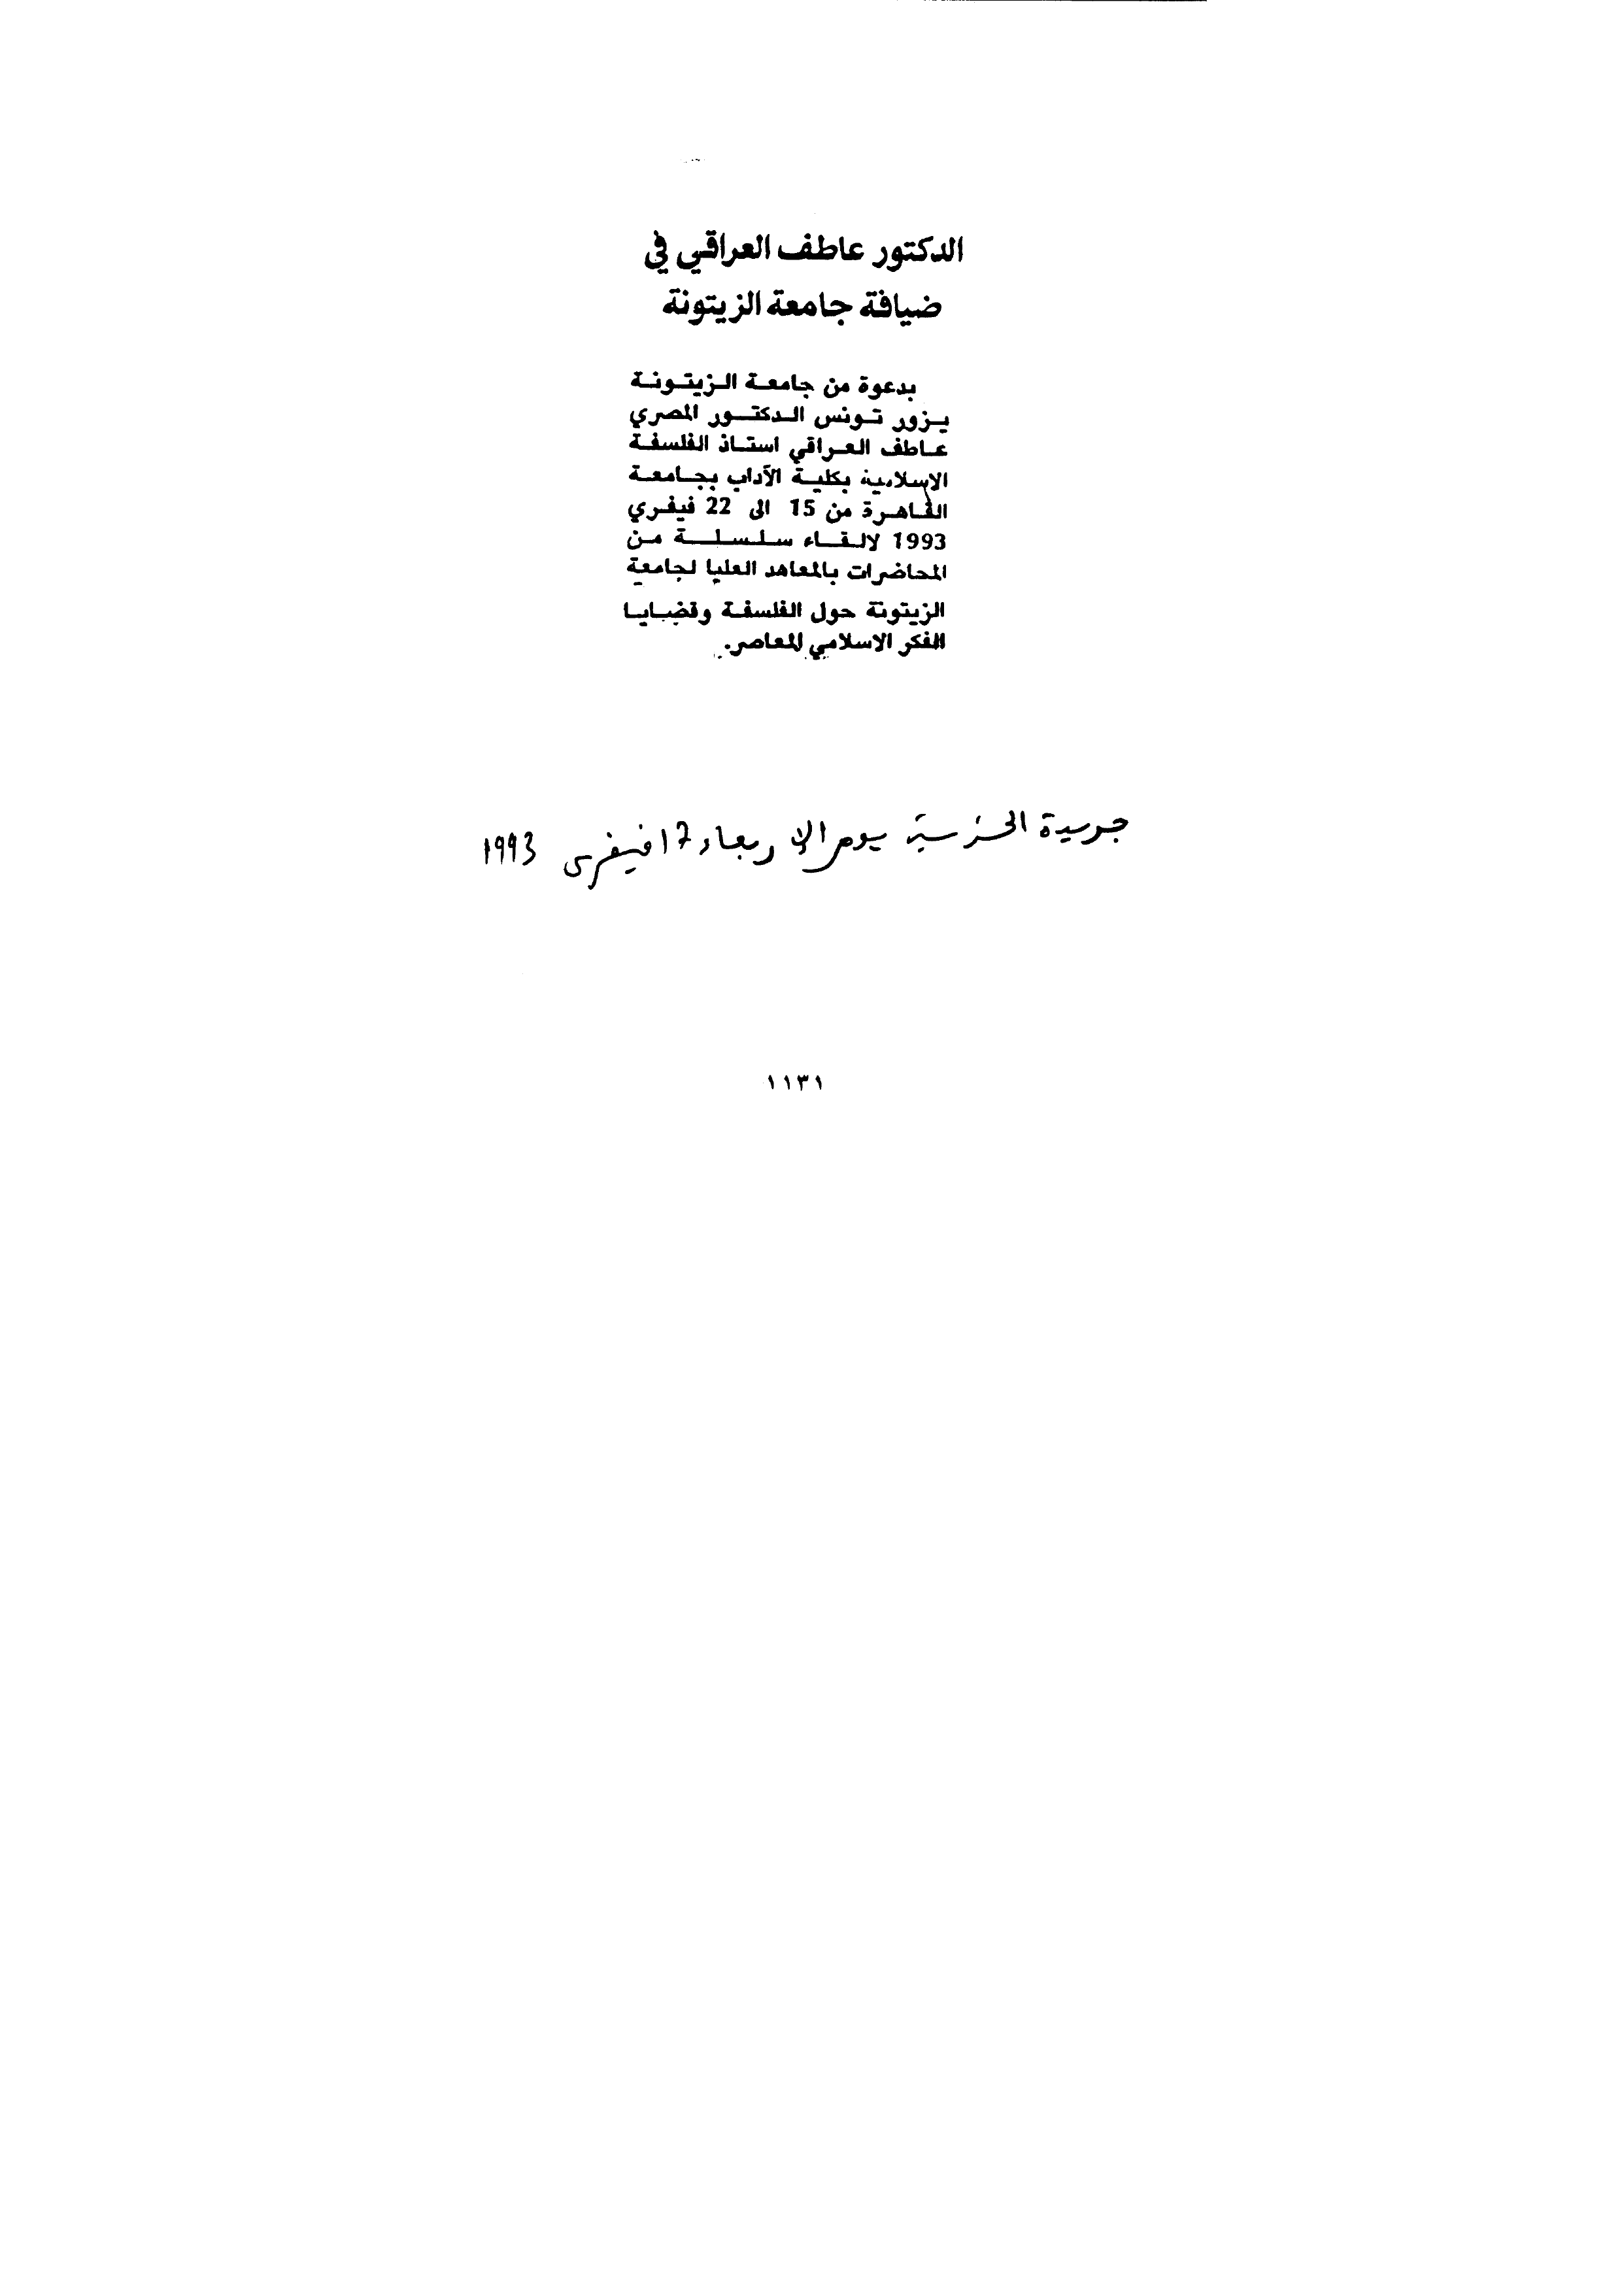 الدكتور عاطف العراقي في
ضيافة جامعة الزيتونة
بدعوة من جامعة الزيتونة
يزور تونس الدكتور المصري
عاطف العراقي استاذ الفلسفة
الاسلامية بكلية الآداب بجامعة
القاهرة من 15 الى 22 فيفري
1993 لالقاء سلسلة من
المحاضرات بالمعاهد العليا لجامعة
الزيتونة حول الفلسفة وقضايا
الفكر الاسلامي المعاصر.
جريدة يوم الاربعاء 17 فيفرى 1993
١١٣١